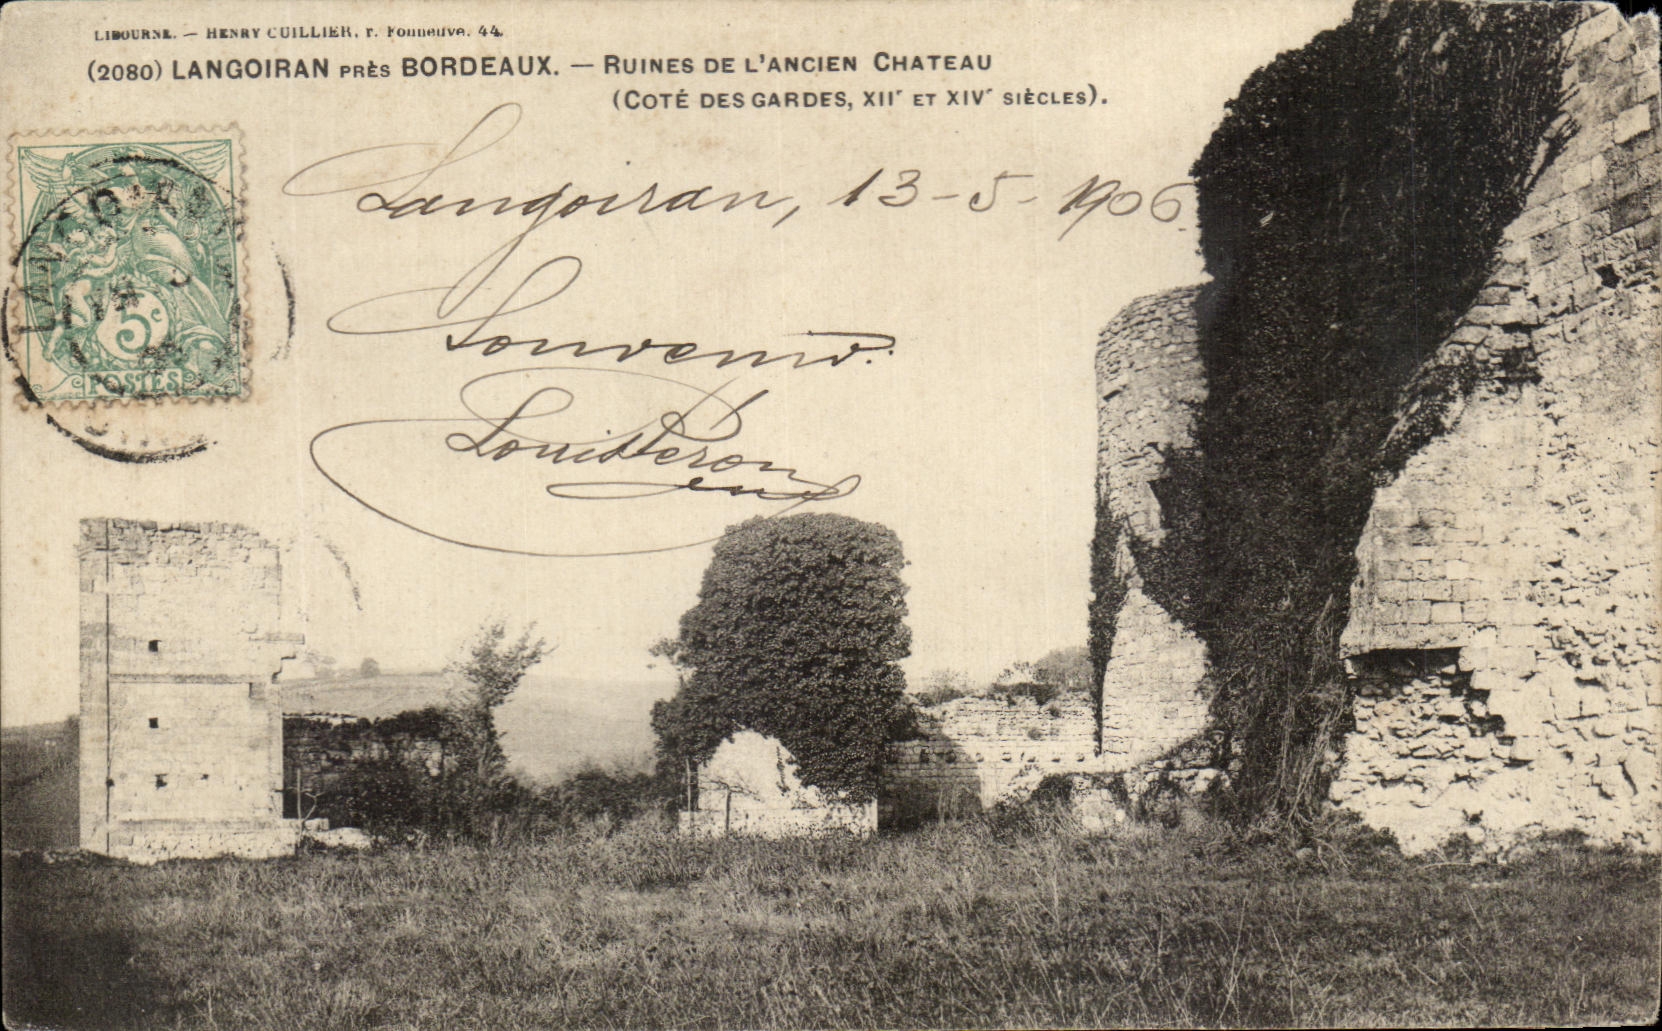 LIBOURNE. — HENRY CUILLIER, r. Fonneuve. 44.
(2080) LANGOIRAN PRÈS BORDEAUX. — RUINES DE L'ANCIEN CHATEAU
(COTÉ DES GARDES, XIIᵉ ET XIVᵉ SIÈCLES).
Langoiran, 13-5-1906.
Souvenir.
5c
POSTES